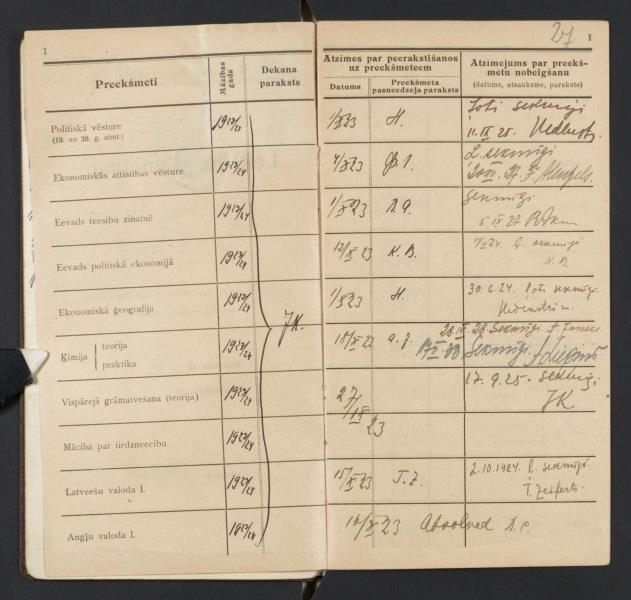 1
Preekšmeti
Mācības gads
Dekana paraksts
Politiskā vēsture
(19. un 20. g. simt.)
1923/24
Ekonomiskās attīstības vēsture
1923/24
Eevads teesību zinatnē
1923/24
Eevads politiskā ekonomijā
1923/24
Ekonomiskā ģeografija
1923/24
JK.
Ķīmija
teorija
praktika
1923/24
Vispārejā grāmatvešana (teorija)
1923/24
Mācība par tirdzneecību
1923/24
Latveešu valoda I.
1923/24
Angļu valoda I.
1923/24
27
1
Atzīmes par peerakstīšanos
uz preekšmeteem
Atzīmejums par preekš-
metu nobeigšanu
Datums
Preekšmeta
pasneedzeja paraksts
(datums, atsauksme, paraksts)
1/X 23
H.
ļoti sekmīgi
11.IX 25.
L. sekmīgi
1/X 23
Sekmīgi
5 IX 27
12/X 23
K. B.
K. B.
1/X 23
H.
30.6.24. ļoti sekmīgi.
18/X 23
a. j.
Sekmīgi.
Sekmīgi.
17.9.25. sekmīgi
JK
27
23
15/X 23
T. Z.
2.10.1924. l. sekmīgi.
T. Zeiferts.
16/X 23
Absolved